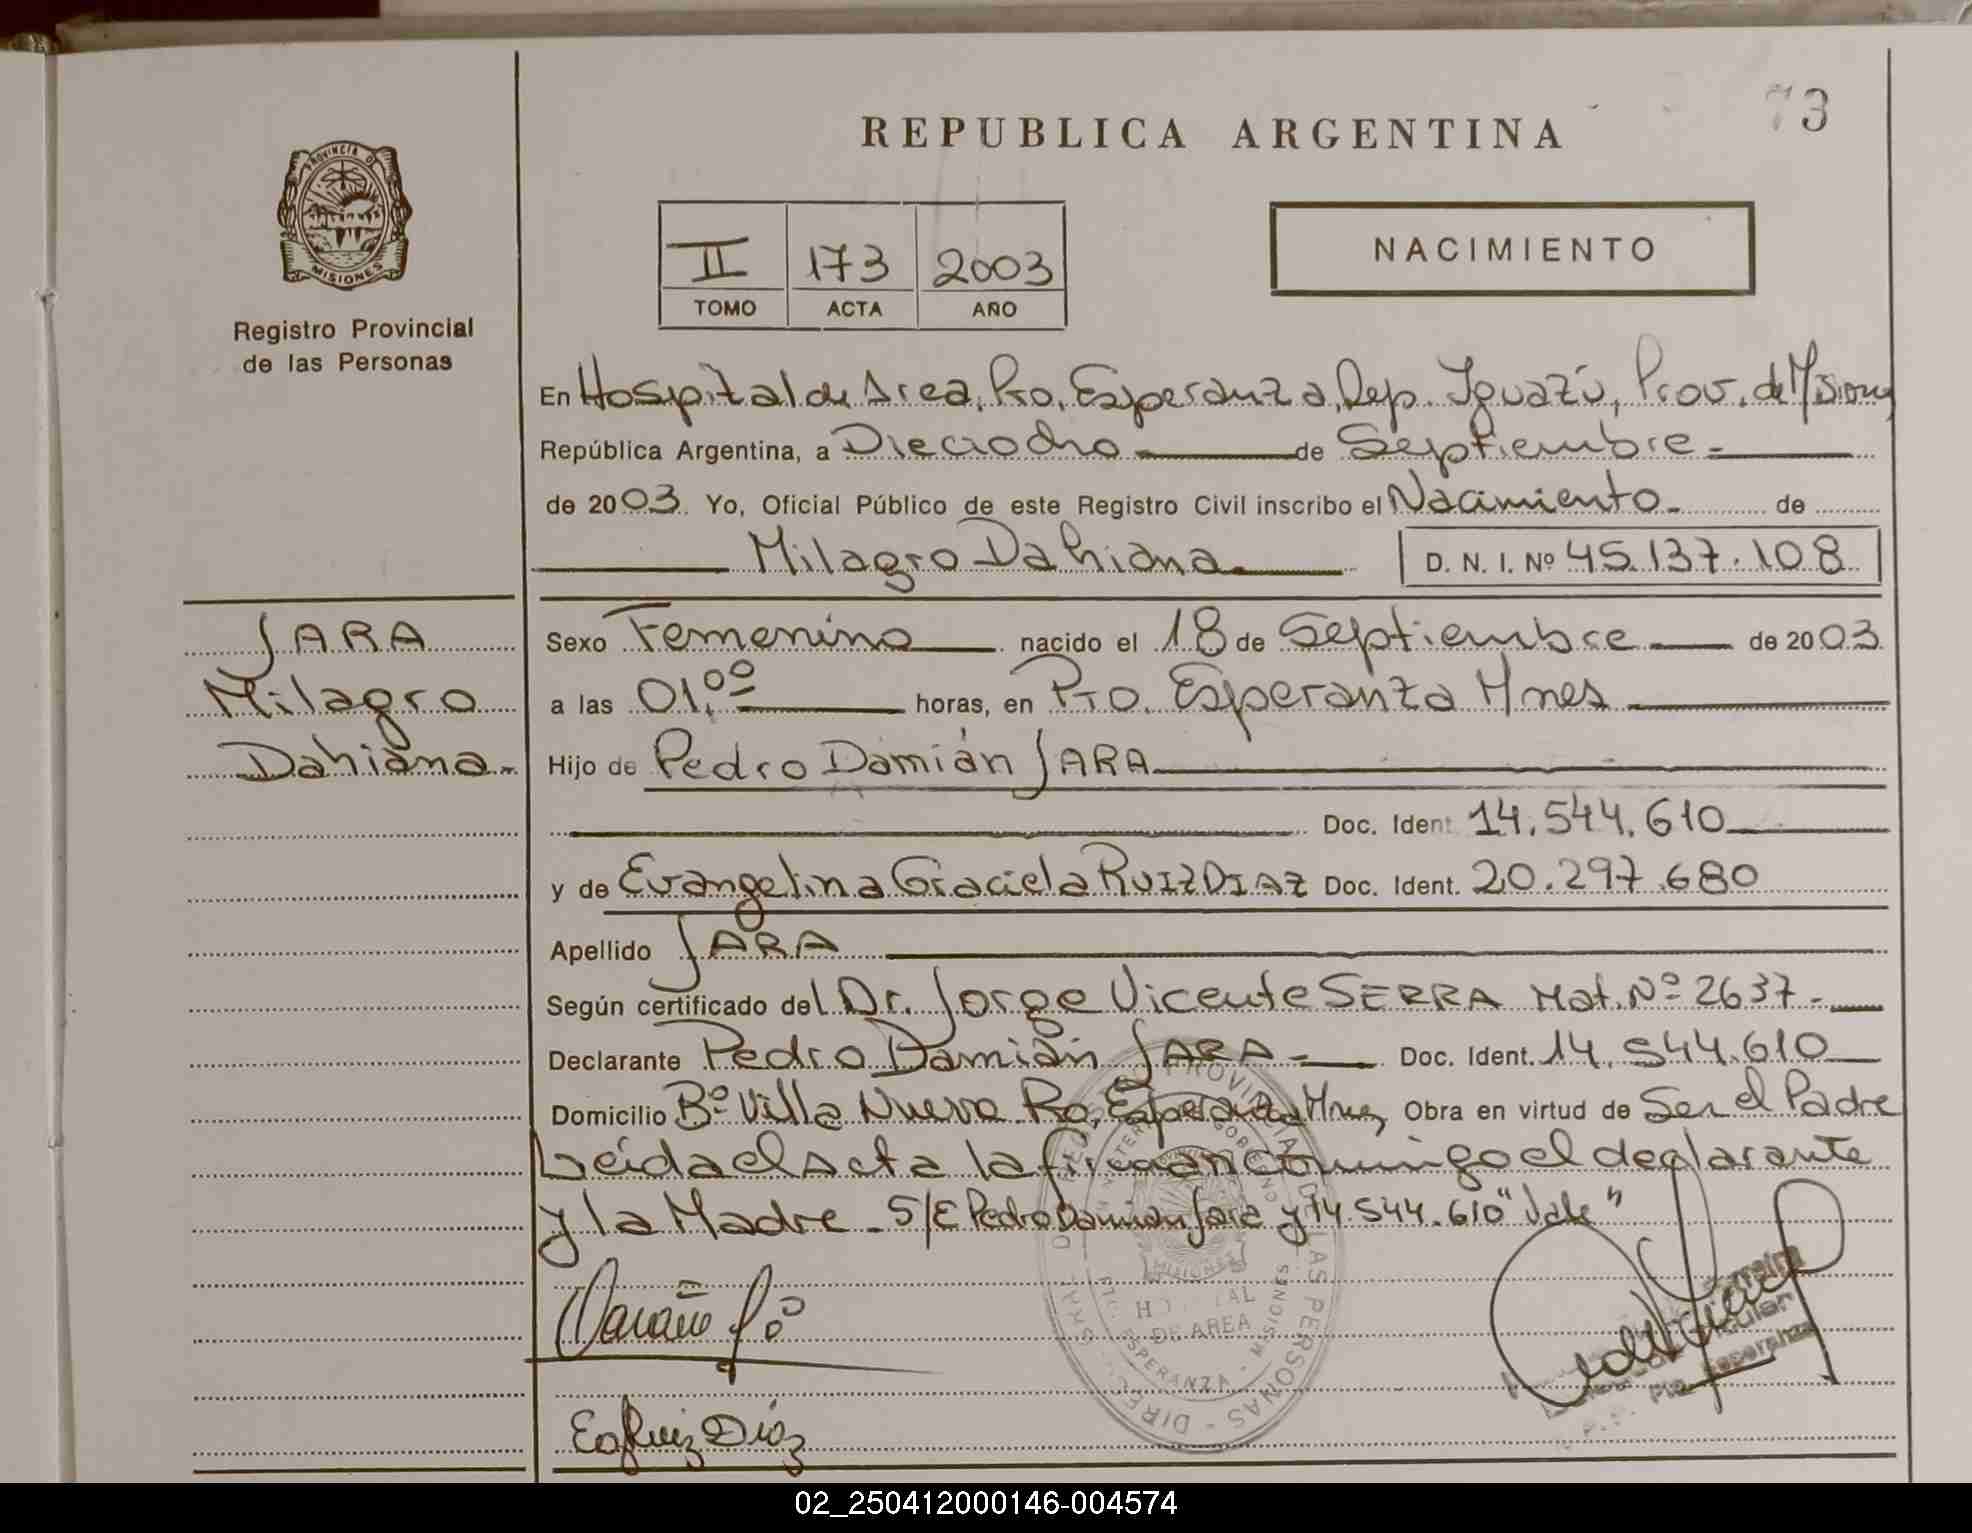 73
REPUBLICA ARGENTINA
PROVINCIA D
MISIONES
Registro Provincial
de las Personas
II 173 2003
TOMO ACTA AÑO
NACIMIENTO
En Hospital de Area, Pto. Esperanza, Dep. Iguazú, Prov. de Misiones
República Argentina, a Dieciocho de Septiembre
de 2003. Yo, Oficial Público de este Registro Civil inscribo el Nacimiento de
Milagro Dahiana D. N. I. Nº 45.137.108
JARA
Milagro
Dahiana
Sexo Femenino nacido el 18 de Septiembre de 2003
a las 01,00 horas, en Pto. Esperanza Mnes
Hijo de Pedro Damián JARA
Doc. Ident. 14.544.610
y de Evangelina Graciela RUIZ DIAZ Doc. Ident. 20.297.680
Apellido JARA
Según certificado del Dr. Jorge Vicente SERRA Mat. Nº 2637
Declarante Pedro Damián JARA Doc. Ident. 14.544.610
Domicilio Bº Villa Nueva Pto. Esperanza Mnes Obra en virtud de Ser el Padre
Leída el Acta la firman conmigo el declarante
y la Madre - S/E Pedro Damian Jara y 14.544.610 "Vale"
HOSPITAL
DE AREA
ESPERANZA - MISIONES
Ruiz Diaz
02_250412000146-004574